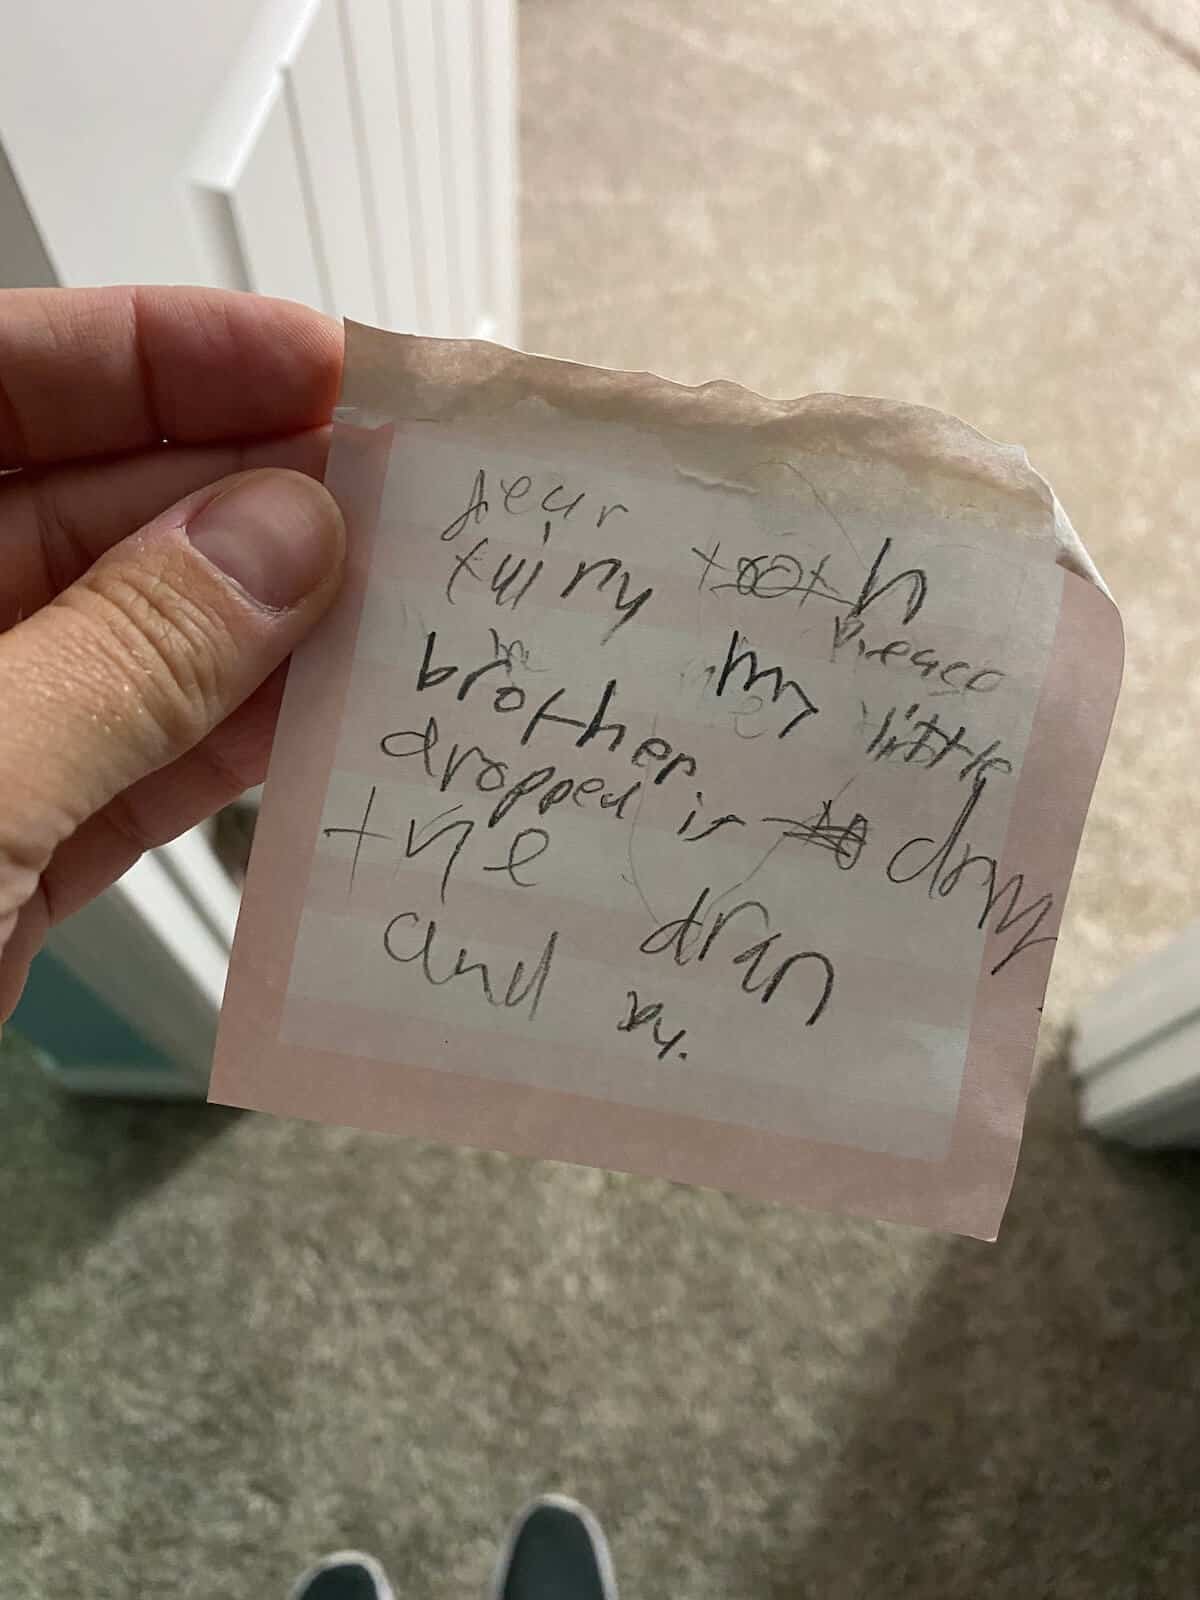 dear
tairy tooth
Pleace
my little
brother
dropped it down
the dran
and